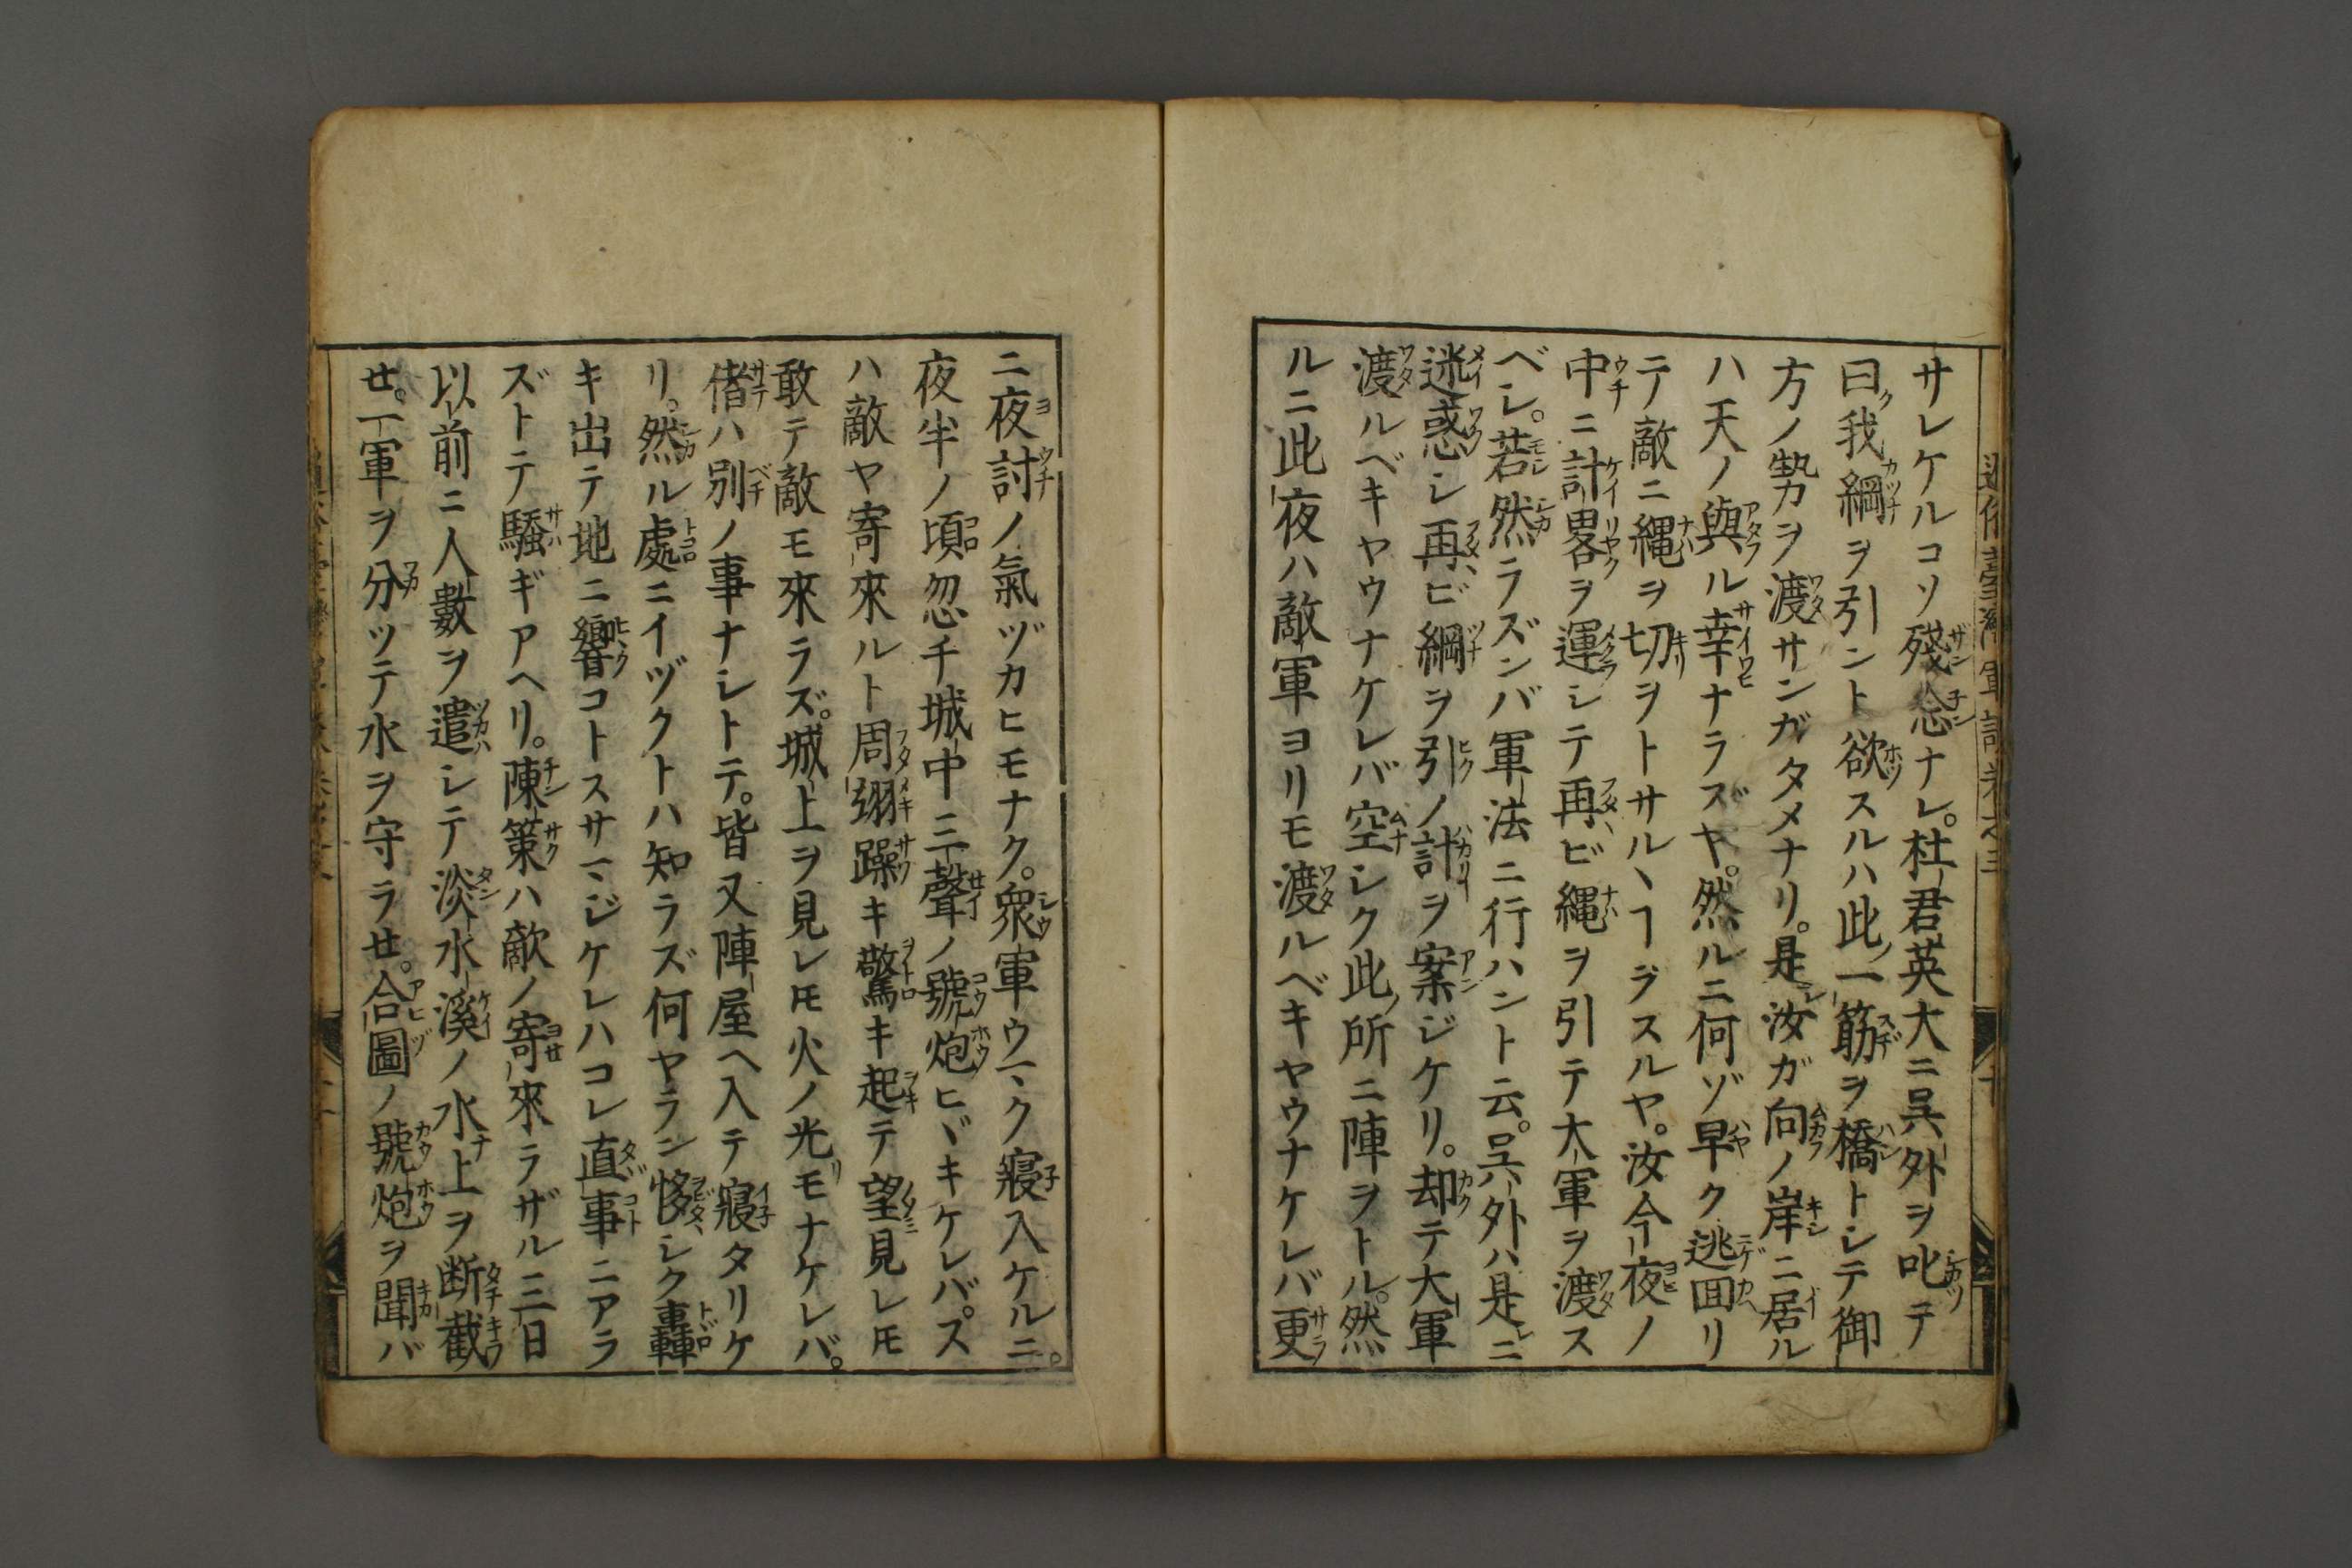 サレケルコソ殘念ナレ。杜君英大ニ呉外ヲ叱テ
曰ク我綱ヲ引ント欲スルハ此ノ一筋ヲ橋トシテ御
方ノ勢ヲ渡サンガタメナリ。是レ汝ガ向ノ岸ニ居ル
ハ天ノ與ル幸ナラズヤ。然ルニ何ゾ早ク逃回リ
テ敵ニ縄ヲ切ヲトサルヽヿヲスルヤ。汝今夜ノ
中ニ計畧ヲ運シテ再ビ縄ヲ引テ大軍ヲ渡ス
ベシ。若然ラズンバ軍法ニ行ハント云。呉外ハ是レニ
迷惑シ再ビ綱ヲ引ノ計ヲ案ジケリ。却テ大軍
渡ルベキヤウナケレバ空シク此ノ所ニ陣ヲトル。然
ルニ此夜ハ敵軍ヨリモ渡ルベキヤウナケレバ更
ニ夜討ノ氣ヅカヒモナク。衆軍ウマク寢入ケルニ。
夜半ノ頃忽チ城中ニ一聲ノ號炮ヒヾキケレバ。ス
ハ敵ヤ寄來ルト周翊躁キ驚キ起テ望見レ𪜈
敢テ敵モ來ラズ。城上ヲ見レ𪜈火ノ光リモナケレバ。
偖ハ別ノ事ナシトテ。皆又陣屋ヘ入テ寢タリケ
リ。然ル處ニイヅクトハ知ラズ何ヤラン夥シク轟
キ出テ地ニ響コトスサマジケレハコレ直事ニアラ
ズトテ騷ギアヘリ。陳策ハ敵ノ寄來ラザル三日
以前ニ人數ヲ遣シテ淡水溪ノ水上ヲ断截
セ。一軍ヲ分ツテ水ヲ守ラセ。合圖ノ號炮ヲ聞バ